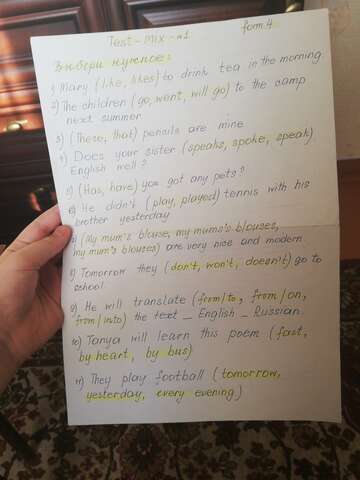 Test - Mix - №1
form 4
Выбери нужное:
1) Mary (like, likes) to drink tea in the morning
2) The children (go, went, will go) to the camp
next summer
3) (These, that) pencils are mine
4) Does your sister (speaks, spoke, speak)
English well?
5) (Has, have) you got any pets?
6) He didn't (play, played) tennis with his
brother yesterday
7) (My mum's blouse, my mums's blouses,
my mum's blouses) are very nice and modern
8) Tomorrow they (don't, won't, doesn't) go to
school.
9) He will translate (from/to, from/on,
from/into) the text _ English _ Russian.
10) Tanya will learn this poem (fast,
by heart, by bus)
11) They play football (tomorrow,
yesterday, every evening)